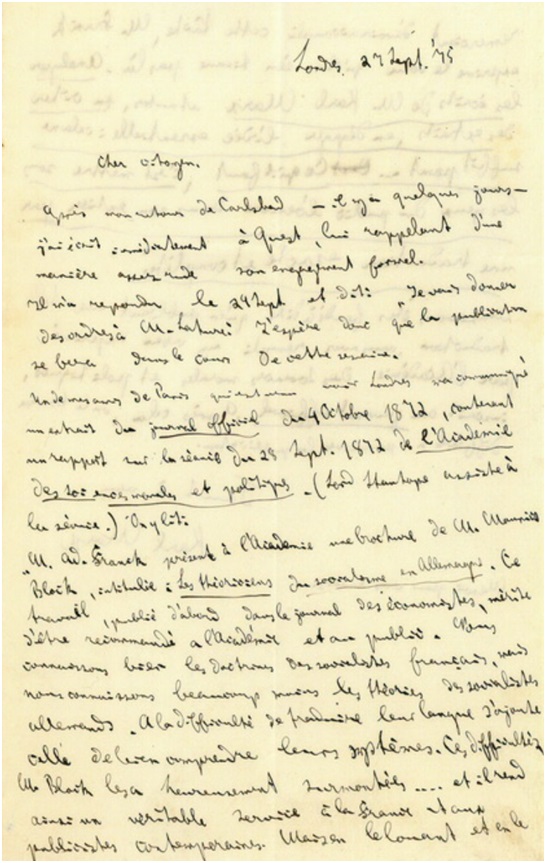 Londres. 27 Sept. '75
Cher citoyen.
Après mon retour de Carlsbad — il y a quelques jours —
j'ai écrit immédiatement à Quest, lui rappellant d'une
manière assez rude son engagement formel.
Il m'a repondu le 24 Sept et dit: "Je vais donner
des ordres à M. Lahure." J'espère donc que la publication
se fera dans le cours de cette semaine.
Un de mes amis de Paris qui est venu voir Londres m'a communiqué
un extrait du journal officiel du 9 Octobre 1872, contenant
un rapport sur la séance du 28 Sept. 1872 de l'Académie
des sciences morales et politiques. (Lord Stanhope assiste à
la séance.) On y lit:
"M. Ad. Franck présente à l'Académie une brochure de M. Maurice
Block, intitulée: Les théoriciens du socialisme en Allemagne. Ce
travail, publié d'abord dans le journal des économistes, mérite
d'être recommandé à l'Académie et au public. Nous
connaissons bien les doctrines des socialistes français, mais
nous connaissons beaucoup moins les théories des socialistes
allemands. A la difficulté de traduire leur langue s'ajoute
celle de bien comprendre leurs systèmes. Ces difficultés,
M. Block les a heureusement surmontées .... et il rend
ainsi un véritable service à la France et aux
publicistes contemporains. Mais en le louant et en le